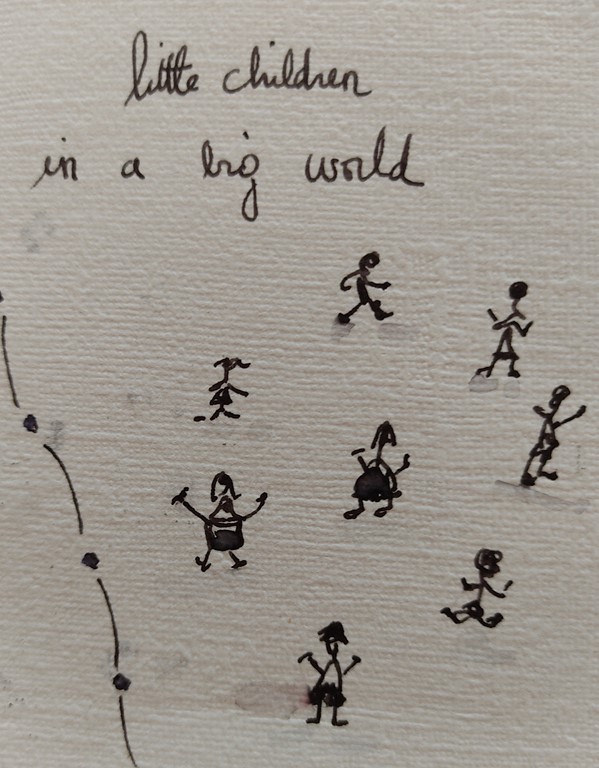 little children
in a big world